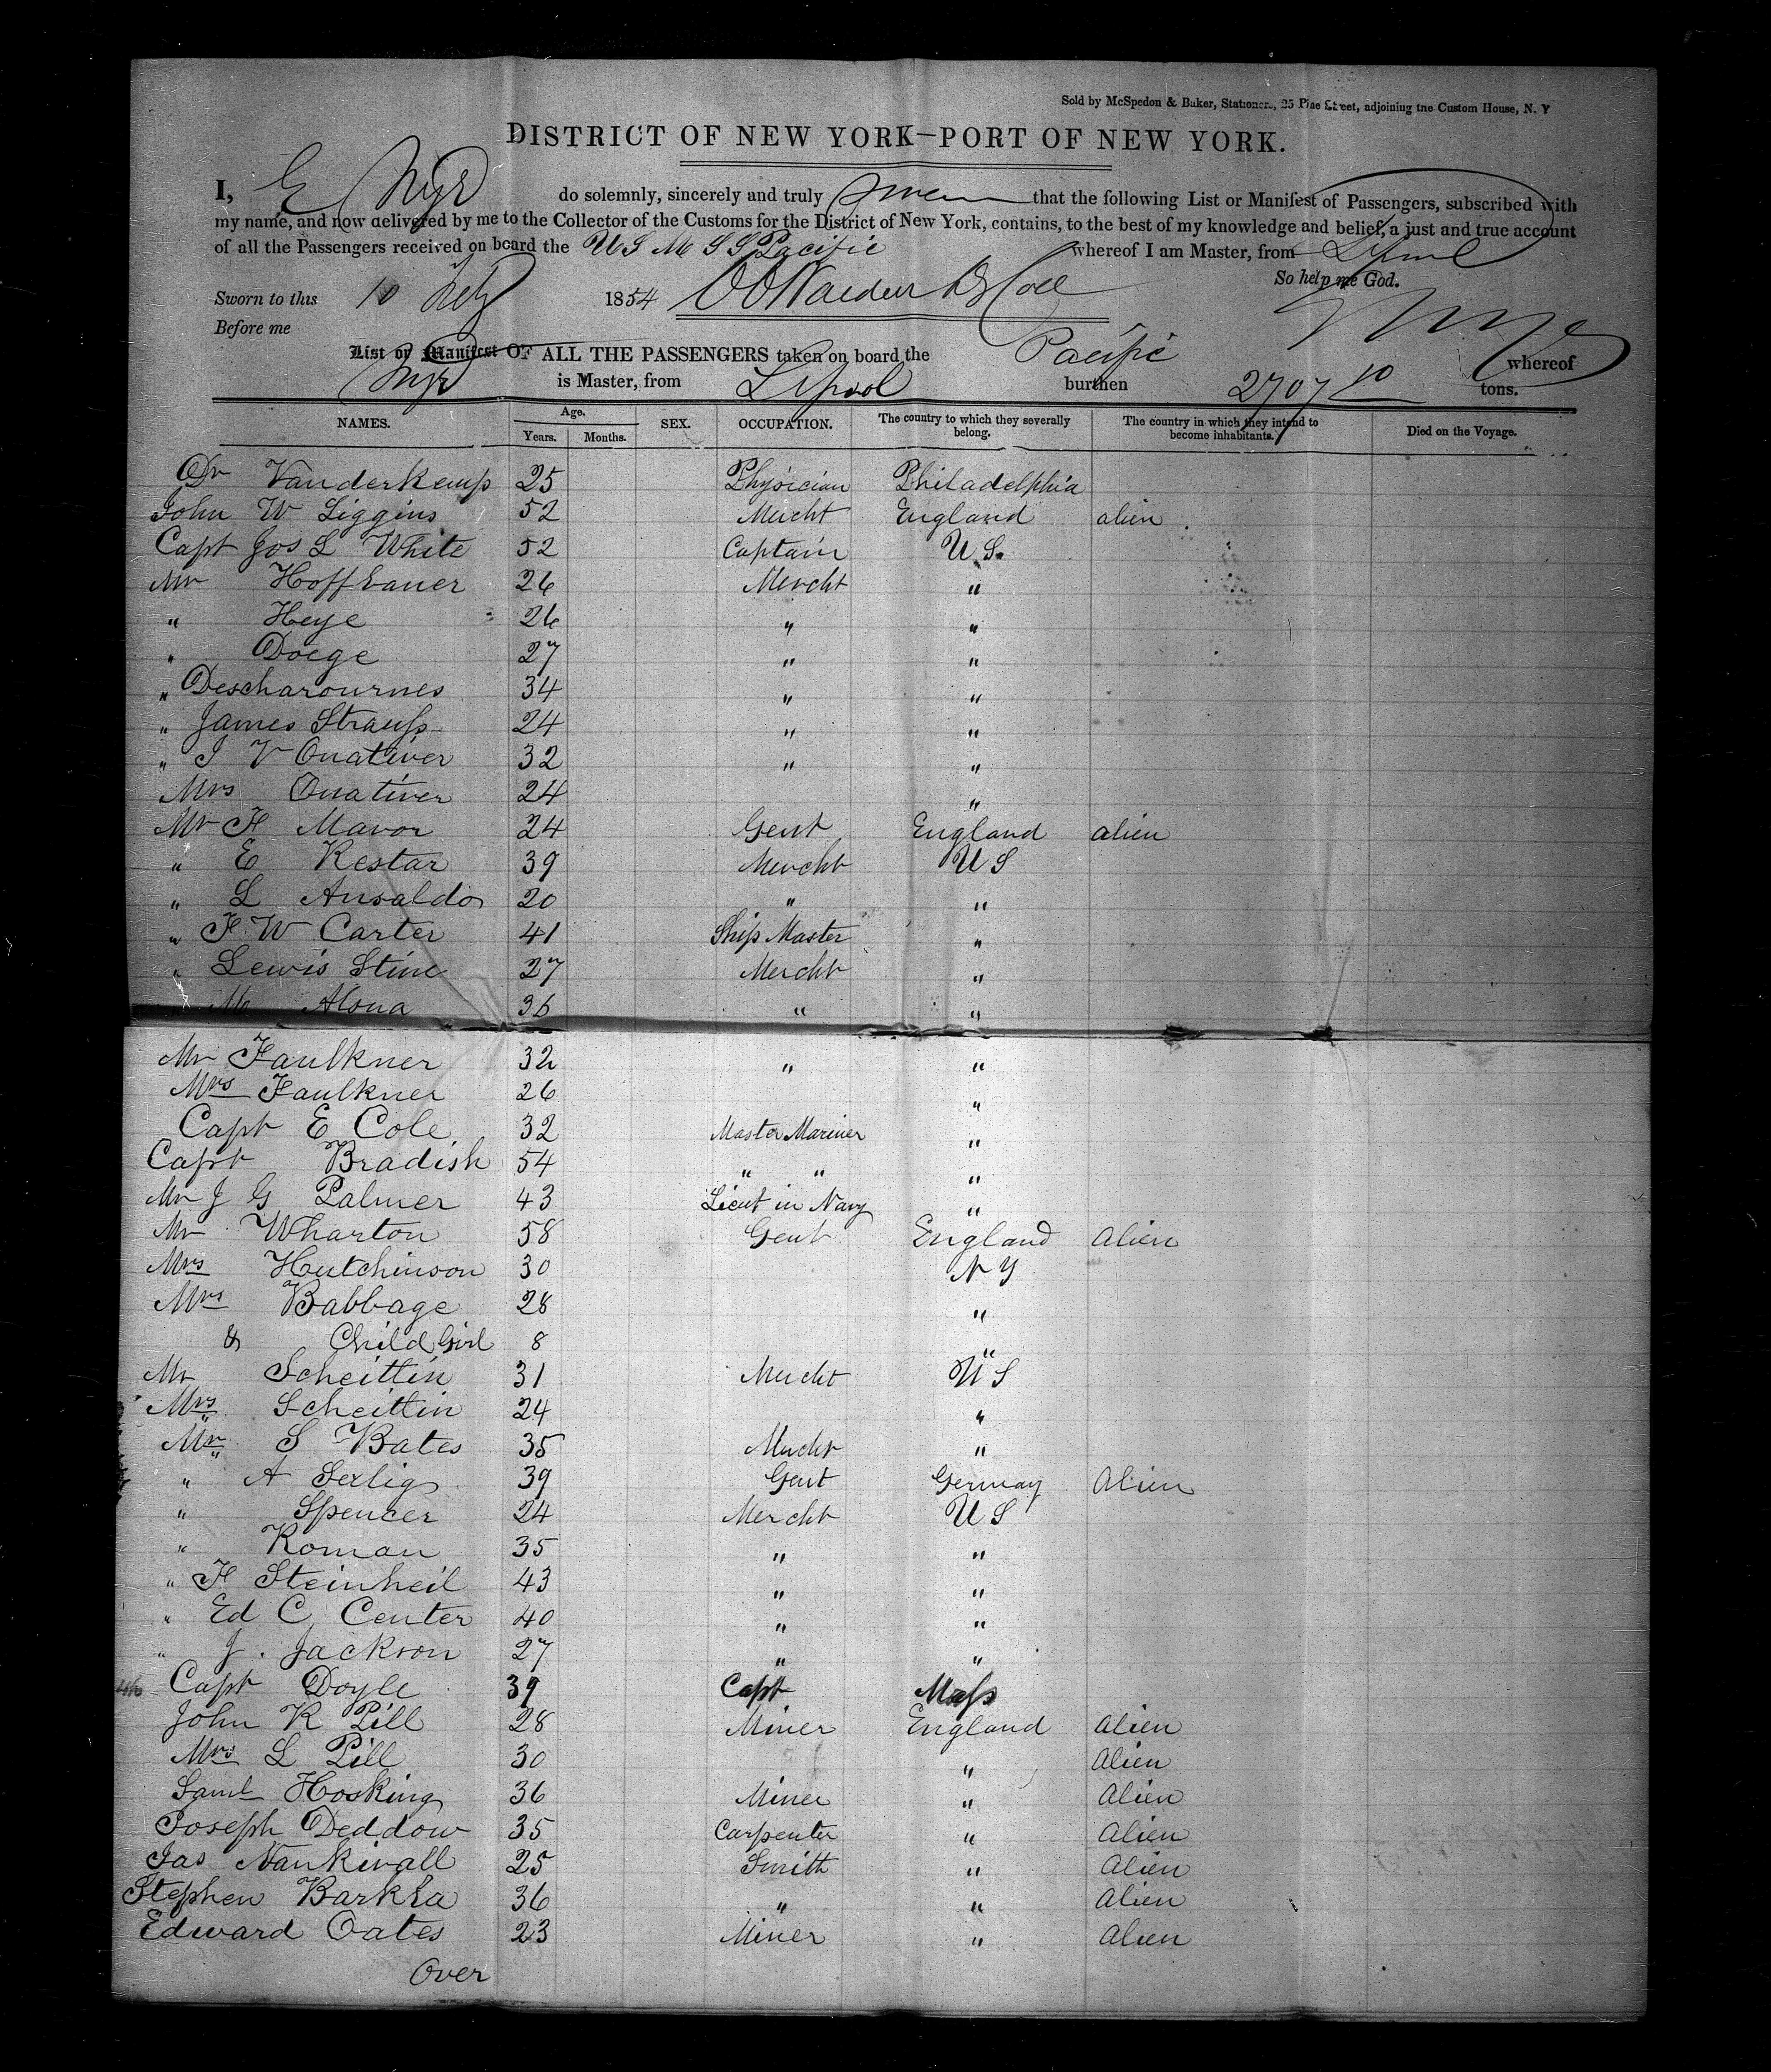 Sold by McSpedon & Baker, Stationers, 25 Pine Street, adjoining the Custom House, N. Y
DISTRICT OF NEW YORK—PORT OF NEW YORK.
I, E Nye do solemnly, sincerely and truly swear that the following List or Manifest of Passengers, subscribed with
my name, and now delivered by me to the Collector of the Customs for the District of New York, contains, to the best of my knowledge and belief, a just and true account
of all the Passengers received on board the U S M S S Pacific whereof I am Master, from Lpool
So help me God.
Sworn to this 10 1854
Before me
List or Manifest OF ALL THE PASSENGERS taken on board the Pacific whereof
Nye is Master, from Lpool burthen 2707 10 tons.
NAMES. Age. Years. Months. SEX. OCCUPATION. The country to which they severally belong. The country in which they intend to become inhabitants. Died on the Voyage.
Dr Vanderkemp 25 Physician Philadelphia
John W Liggins 52 Mercht England alien
Capt Jos L White 52 Captain U S.
Mr Hoffbauer 26 Mercht "
" Heye 26 " "
" Doege 27 " "
" Descharournes 34 " "
" James Strauss 24 " "
" J V Onativer 32 " "
Mrs Onativer 24 "
Mr F Mavor 24 Gent England alien
" E Kestar 39 Mercht U S
" L Ansaldo 20 " "
" F W Carter 41 Ship Master "
" Lewis Stine 27 Mercht "
" M Alona 36 " "
Mr Faulkner 32 " "
Mrs Faulkner 26 "
Capt E Cole 32 Master Mariner "
Capt Bradish 54 " " "
Mr J G Palmer 43 Lieut in Navy "
Mr Wharton 58 Gent England Alien
Mrs Hutchinson 30 N Y
Mrs Babbage 28 "
& Child Girl 8 "
Mr Scheittin 31 Mercht U S
Mrs Scheittin 24 "
Mr S Bates 35 Mercht "
" A Serlig 39 Gent Germay Alien
" Spencer 24 Mercht U S
" Roman 35 " "
" F Steinheil 43 " "
" Ed C Center 40 " "
" J. Jackson 27 " "
Capt Doyle 39 Capt Mass
John K Pill 28 Miner England Alien
Mrs L Pill 30 " Alien
Saml Hosking 36 Miner " Alien
Joseph Deddow 35 Carpenter " Alien
Jas Nankivall 25 Smith " Alien
Stephen Barkla 36 " " Alien
Edward Oates 23 Miner " Alien
Over